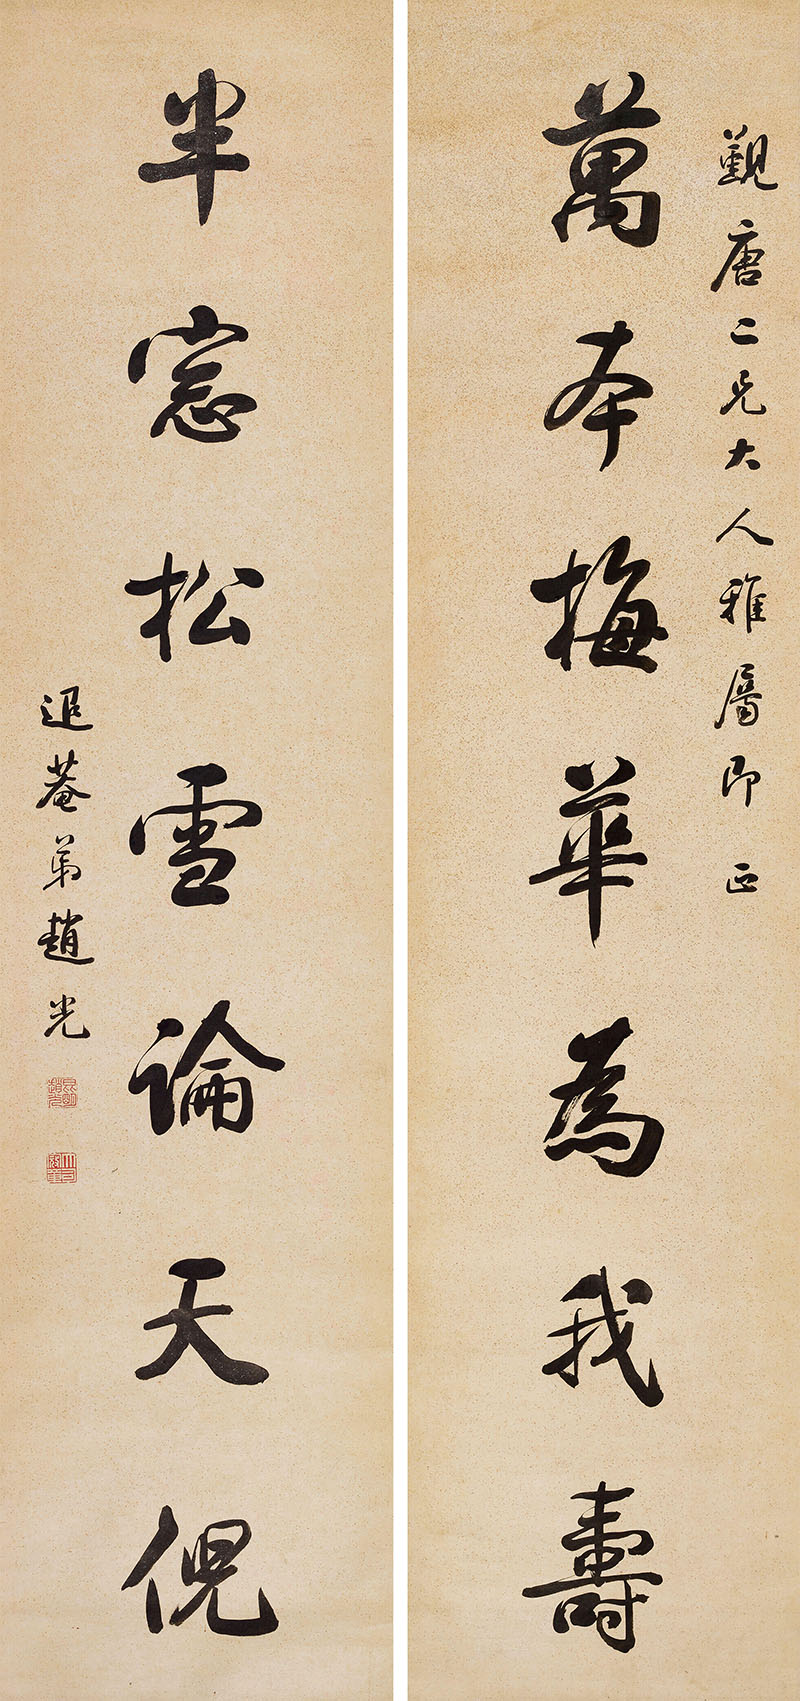 觀唐二兄大人雅屬即正
萬本梅華為我壽
半窓松雪論天倪
退菴弟趙光